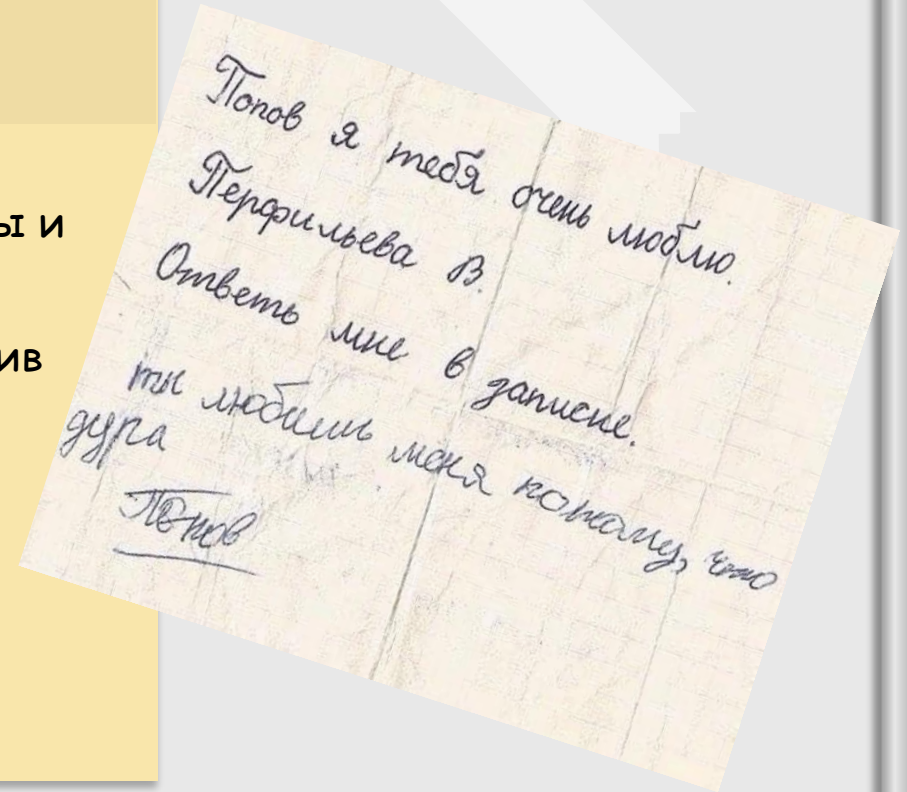 ы и
ив
Попов я тебя очень люблю.
Перфильева В.
Ответь мне в записке.
ты любишь меня потому, что
дура
Попов